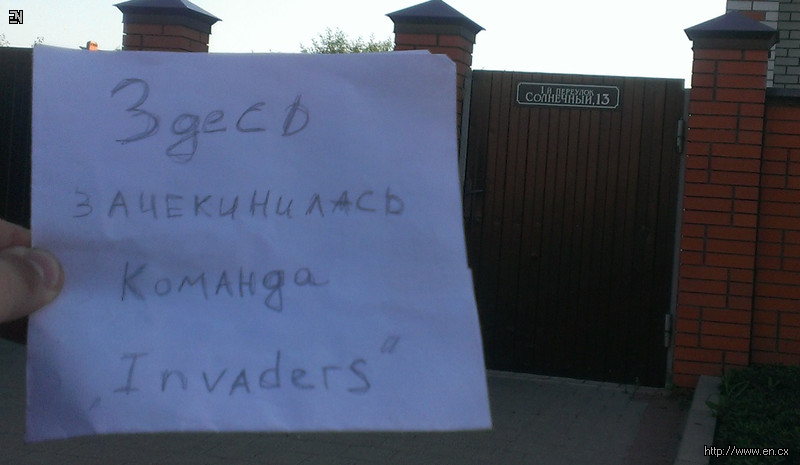 EN
1й ПЕРЕУЛОК
СОЛНЕЧНЫЙ,13
Здесь
ЗАЧЕКИНИЛАСЬ
Команда
„Invaders“
http://www.en.cx